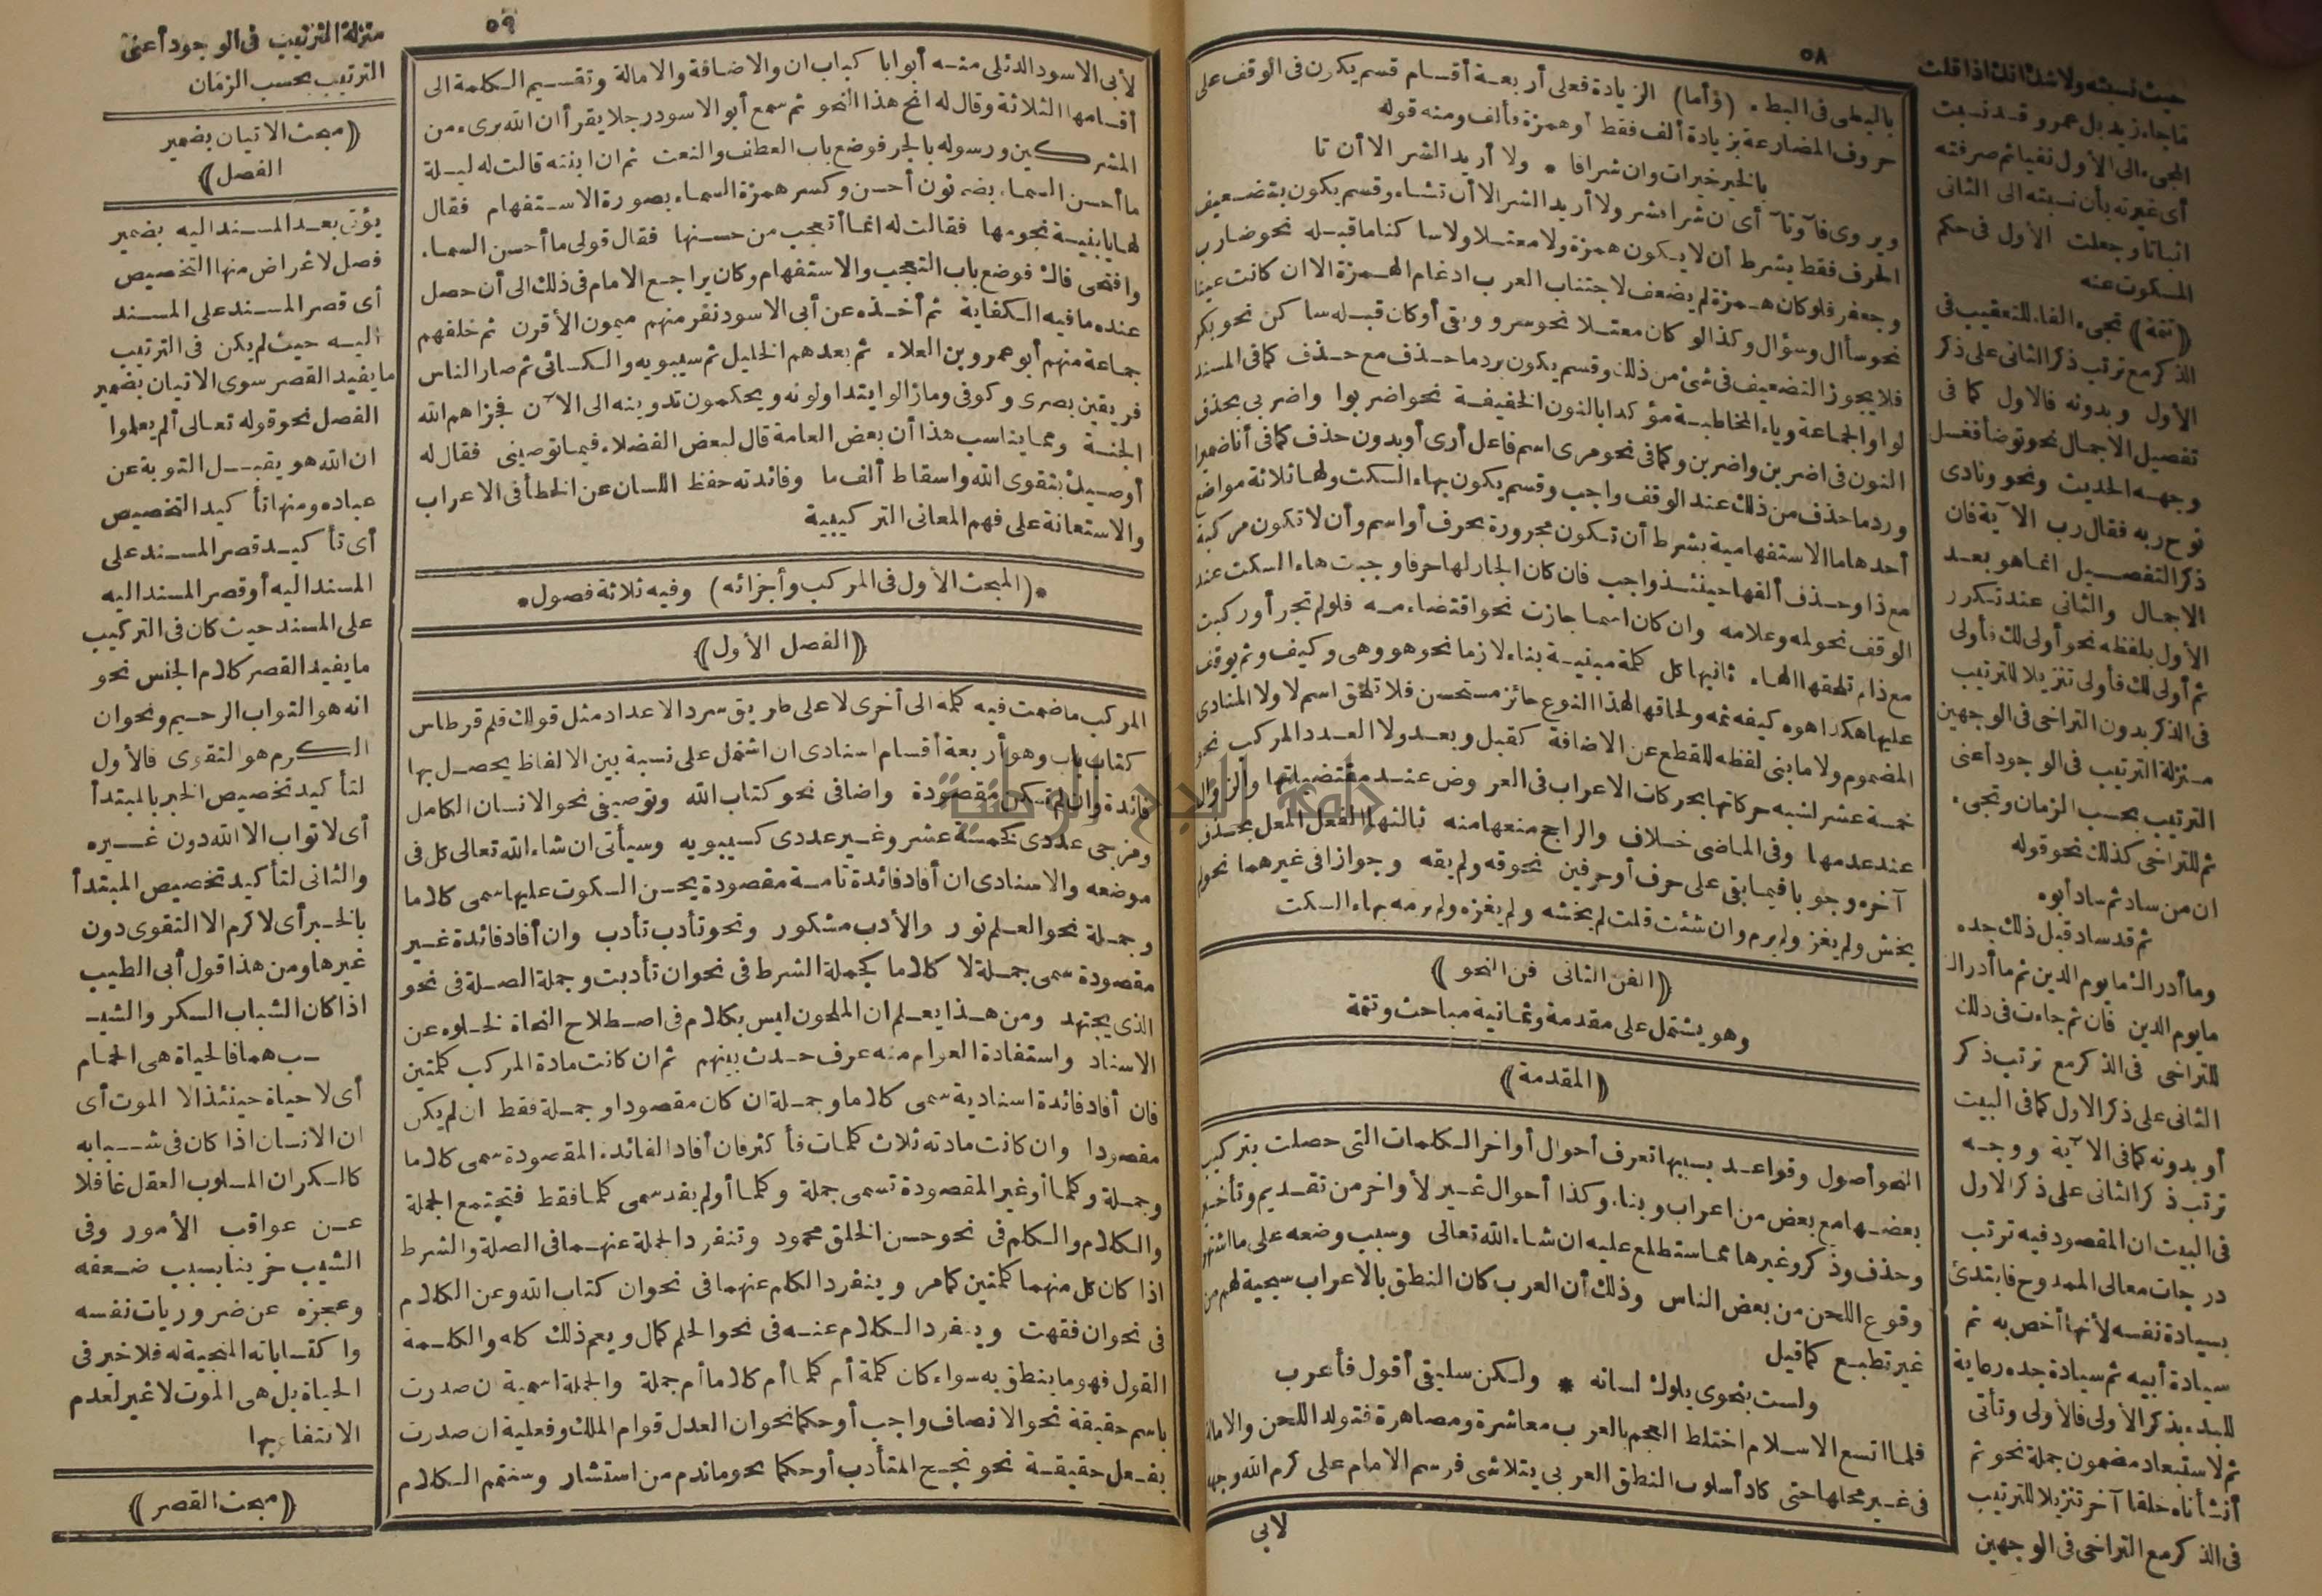 ٥٨
بالبطى فى البط . (وأما) الزيادة فعلى أربعة أقسام قسم يكون فى الوقف على
حروف المضارعة بزيادة ألف فقط أو همزة وألف ومنه قوله
بالخير خيرات وان شرافا * ولا أريد الشر الا أن تا
ويروى فآ وتآ أى ان شرا فشر ولا أريد الشر الا أن تشاء وقسم يكون بتضعيف
الحرف فقط بشرط أن لا يكون همزة ولا معتلا ولا ساكنا ما قبله نحو ضارب
وجعفر فلو كان همزة لم يضعف لاجتناب العرب ادغام الهمزة الا ان كانت عينا
نحو سأال وسؤال وكذا لو كان معتلا نحو سرو وبقى أو كان قبله ساكن نحو بكر
فلا يجوز التضعيف فى شئ من ذلك وقسم يكون برد ما حذف مع حذف كما فى المسند
لواو الجماعة وياء المخاطبة مؤكدا بالنون الخفيفة نحو اضربوا واضربى بحذف
النون فى اضربن واضربن وكما فى نحو مرى اسم فاعل أرى أو بدون حذف كما فى أنا ضميرا
ورد ما حذف من ذلك عند الوقف واجب وقسم يكون بهاء السكت ولها ثلاثة مواضع
أحدها ما الاستفهامية بشرط أن تكون مجرورة بحرف أو اسم وأن لا تكون مركبة
مع ذا وحذف ألفها حينئذ واجب فان كان الجار لها حرفا وجبت هاء السكت عند
الوقف نحو لمه وعلامه وان كان اسما جازت نحو اقتضاء مه فلو لم تجر أو ركبت
مع ذا لم تلحقها الهاء ثانيها كل كلمة مبنية بناء لازما نحو هو وهى وكيف وثم يوقف
عليها هكذا هوه كيفه ثمه ولحاقها لهذا النوع جائز مستحسن فلا تلحق اسم لا ولا المنادى
المضموم ولا ما بنى لفظه للقطع عن الاضافة كقبل وبعد ولا العدد المركب نحو
خمسة عشر لشبه حركاتها بحركات الاعراب فى العروض عند مقتضياتها والزوال
عند عدمها وفى الماضى خلاف والراجح منعها منه ثالثها الفعل المعل بحذف
آخره وجوبا فيما بقى على حرف أو حرفين نحو قه ولم يقه وجوازا فى غيرهما نحو لم
يخش ولم يغز ولم يرم وان شئت قلت لم يخشه ولم يغزه ولم يرمه بهاء السكت
﴿الفن الثانى فن النحو﴾
وهو يشتمل على مقدمة وثمانية مباحث وتتمة
﴿المقدمة﴾
النحو أصول وقواعد بسببها تعرف أحوال أواخر الكلمات التى حصلت بتركيب
بعضها مع بعض من اعراب وبناء وكذا أحوال غير الأواخر من تقديم وتأخير
وحذف وذكر وغيرها مما ستطلع عليه ان شاء الله تعالى وسبب وضعه على ما اشتهر
وقوع اللحن من بعض الناس وذلك أن العرب كان النطق بالاعراب سجية لهم من
غير تطبع كما قيل
ولست بنحوى يلوك لسانه * ولكن سليقى أقول فأعرب
فلما اتسع الاسلام اختلط العجم بالعرب معاشرة ومصاهرة فتولد اللحن والامالة
فى غير محلها حتى كاد أسلوب النطق العربى يتلاشى فرسم الامام على كرم الله وجهه
لابى
حيث نسبته ولا شك انك اذا قلت
ما جاء زيد بل عمرو قد نسبت
المجىء الى الأول نفيا ثم صرفته
أى غيرته بأن نسبته الى الثانى
اثباتا وجعلت الأول فى حكم
المسكوت عنه
(تتمة) تجىء الفاء للتعقيب فى
الذكر مع ترتب ذكر الثانى على ذكر
الأول وبدونه فالاول كما فى
تفصيل الاجمال نحو توضأ فغسل
وجهه الحديث ونحو ونادى
نوح ربه فقال رب الآية فان
ذكر التفصيل انما هو بعد
الاجمال والثانى عند تكرر
الأول بلفظه نحو أولى لك فأولى
ثم أولى لك فأولى تنزيلا للترتيب
فى الذكر بدون التراخى فى الوجهين
منزلة الترتيب فى الوجود أعنى
الترتيب بحسب الزمان وتجىء
ثم للتراخى كذلك نحو قوله
ان من ساد ثم ساد أبوه
ثم قد ساد قبل ذلك جده
وما أدراك ما يوم الدين ثم ما أدراك
ما يوم الدين فان ثم جاءت فى ذلك
للتراخى فى الذكر مع ترتب ذكر
الثانى على ذكر الاول كما فى البيت
أو بدونه كما فى الآية ووجه
ترتب ذكر الثانى على ذكر الاول
فى البيت ان المقصود فيه ترتب
درجات معالى الممدوح فابتدئ
بسيادة نفسه لأنها أخص به ثم
سيادة أبيه ثم سيادة جده رعاية
للبدء بذكر الأولى فالأولى وتأتى
ثم لاستبعاد مضمون جملة نحو ثم
أنشأناه خلقا آخر تنزيلا للترتيب
فى الذكر مع التراخى فى الوجهين
٥٩
لأبى الاسود الدئلى منه أبوابا كباب ان والاضافة والامالة وتقسيم الكلمة الى
أقسامها الثلاثة وقال له انح هذا النحو ثم سمع أبو الاسود رجلا يقرأ ان الله برىء من
المشركين ورسوله بالجر فوضع باب العطف والنعت ثم ان ابنته قالت له ليلة
ما أحسن السماء بضم نون أحسن وكسر همزة السماء بصورة الاستفهام فقال
لها يا بنية نجومها فقالت له انما أتعجب من حسنها فقال قولى ما أحسن السماء
وافتحى فاك فوضع باب التعجب والاستفهام وكان يراجع الامام فى ذلك الى أن حصل
عنده ما فيه الكفاية ثم أخذه عن أبى الاسود نفر منهم ميمون الأقرن ثم خلفهم
جماعة منهم أبو عمرو بن العلاء ثم بعدهم الخليل ثم سيبويه والكسائى ثم صار الناس
فريقين بصرى وكوفى وما زالوا يتداولونه ويحكمون تدوينه الى الآن فجزاهم الله
الجنة ومما يناسب هذا أن بعض العامة قال لبعض الفضلاء فيما توصينى فقال له
أوصيك بتقوى الله واسقاط ألف ما وفائدته حفظ اللسان عن الخطأ فى الاعراب
والاستعانة على فهم المعانى التركيبية
*(المبحث الأول فى المركب وأجزائه) وفيه ثلاثة فصول*
﴿الفصل الأول﴾
المركب ما ضمت فيه كلمة الى أخرى لا على طريق سرد الاعداد مثل قولك قلم قرطاس
كتاب باب وهو أربعة أقسام اسنادى ان اشتمل على نسبة بين الالفاظ يحصل بها
فائدة وان لم تكن مقصودة واضافى نحو كتاب الله وتوصيفى نحو الانسان الكامل
ومزجى عددى كخمسة عشر وغير عددى كسيبويه وسيأتى ان شاء الله تعالى كل فى
موضعه والاسنادى ان أفاد فائدة تامة مقصودة يحسن السكوت عليها سمى كلاما
وجملة نحو العلم نور والأدب مشكور ونحو تأدب تأدب وان أفاد فائدة غير
مقصودة سمى جملة لا كلاما كجملة الشرط فى نحو ان تأدبت وجملة الصلة فى نحو
الذى يجتهد ومن هذا يعلم ان الملحون ليس بكلام فى اصطلاح النحاة لخلوه عن
الاسناد واستفادة العوام منه عرف حدث بينهم ثم ان كانت مادة المركب كلمتين
فان أفاد فائدة اسنادية سمى كلاما وجملة ان كان مقصودا وجملة فقط ان لم يكن
مقصودا وان كانت مادته ثلاث كلمات فأكثر فان أفاد الفائدة المقصودة سمى كلاما
وجملة وكلما أو غير المقصودة تسمى جملة وكلما أو لم يفد سمى كلما فقط فتجتمع الجملة
والكلام والكلم فى نحو حسن الخلق محمود وتنفرد الجملة عنهما فى الصلة والشرط
اذا كان كل منهما كلمتين كما مر وينفرد الكلم عنهما فى نحو ان كتاب الله وعن الكلام
فى نحو ان فقهت وينفرد الكلام عنه فى نحو الحلم كمال ويعم ذلك كله والكلمة
القول فهو ما ينطق به سواء كان كلمة أم كلما أم كلاما أم جملة والجملة اسمية ان صدرت
باسم حقيقة نحو الانصاف واجب أو حكما نحو ان العدل قوام الملك وفعلية ان صدرت
بفعل حقيقة نحو نجح المتأدب أو حكما نحو ما ندم من استشار وستتم الكلام
منزلة الترتيب فى الوجود أعنى
الترتيب بحسب الزمان
﴿مبحث الاتيان بضمير
الفصل﴾
يؤتى بعد المسند اليه بضمير
فصل لاغراض منها التخصيص
أى قصر المسند على المسند
اليه حيث لم يكن فى الترتيب
ما يفيد القصر سوى الاتيان بضمير
الفصل نحو قوله تعالى ألم يعلموا
ان الله هو يقبل التوبة عن
عباده ومنها تأكيد التخصيص
أى تأكيد قصر المسند على
المسند اليه أو قصر المسند اليه
على المسند حيث كان فى التركيب
ما يفيد القصر كلام الجنس نحو
انه هو التواب الرحيم ونحو ان
الكرم هو التقوى فالأول
لتأكيد تخصيص الخبر بالمبتدأ
أى لا تواب الا الله دون غيره
والثانى لتأكيد تخصيص المبتدأ
بالخبر أى لا كرم الا التقوى دون
غيرها ومن هذا قول أبى الطيب
اذا كان الشباب السكر والشيـ
ـب هما فالحياة هى الحمام
أى لا حياة حينئذ الا الموت أى
ان الانسان اذا كان فى شبابه
كالسكران المسلوب العقل غافلا
عن عواقب الأمور وفى
الشيب حزينا بسبب ضعفه
وعجزه عن ضروريات نفسه
واكتساباته المنجية له فلا خير فى
الحياة بل هى الموت لا غير لعدم
الانتفاع بها
﴿مبحث القصر﴾
جامعة النجاح الوطنية